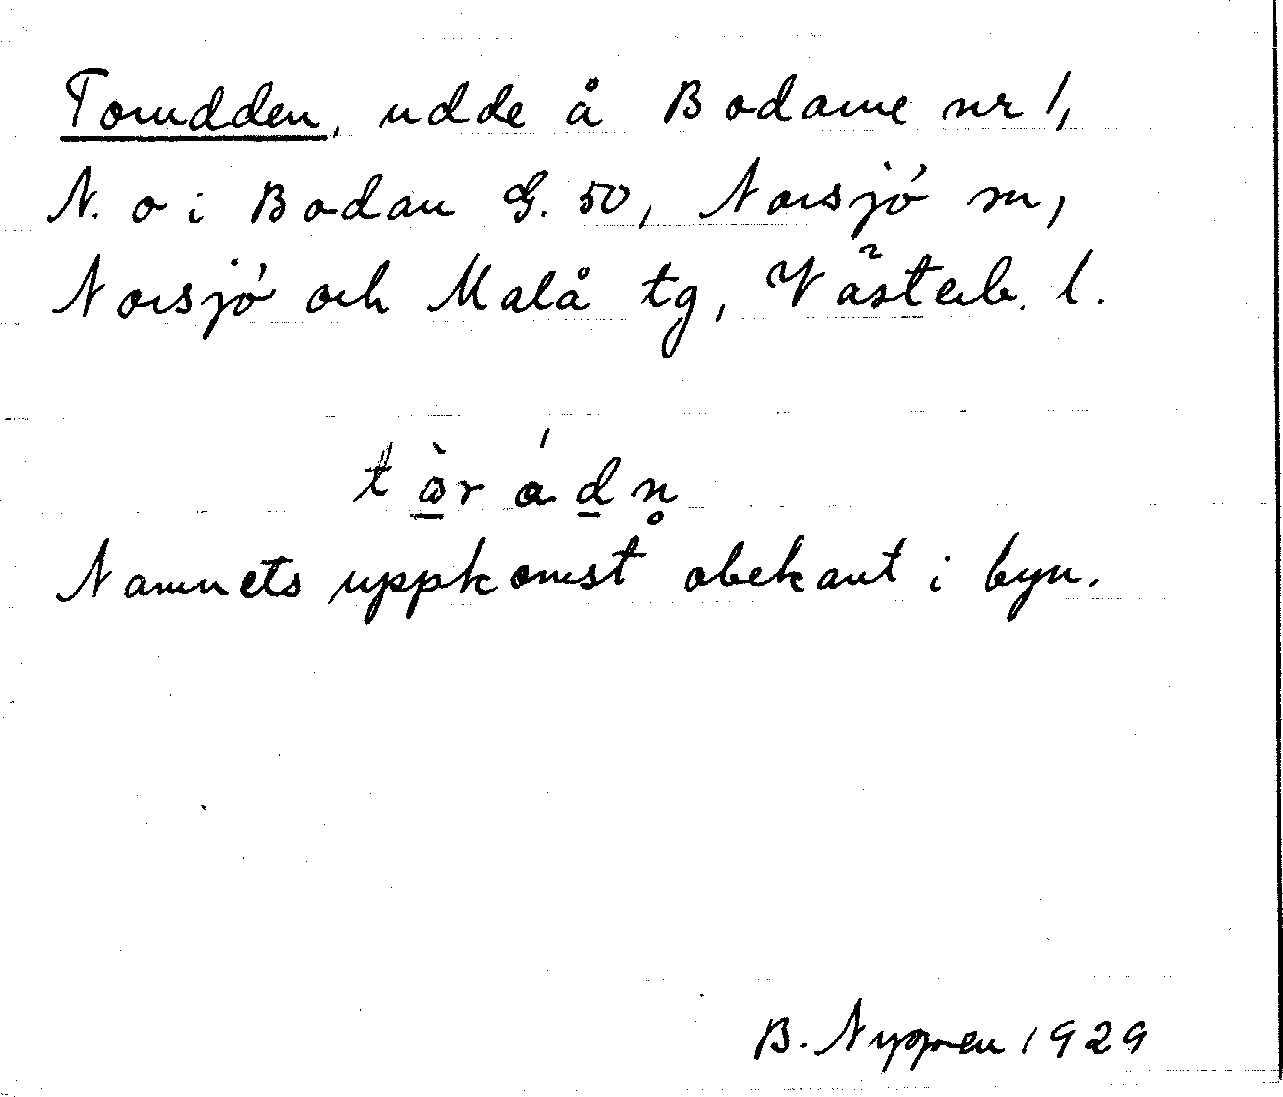 Torudden, udde å Bodarne nr 1,
N. o i Bodan G. 50, Norsjö sn,
Norsjö och Malå tg, Västerb. l.
Namnets uppkomst obekant i byn.
B. Nygren 1929